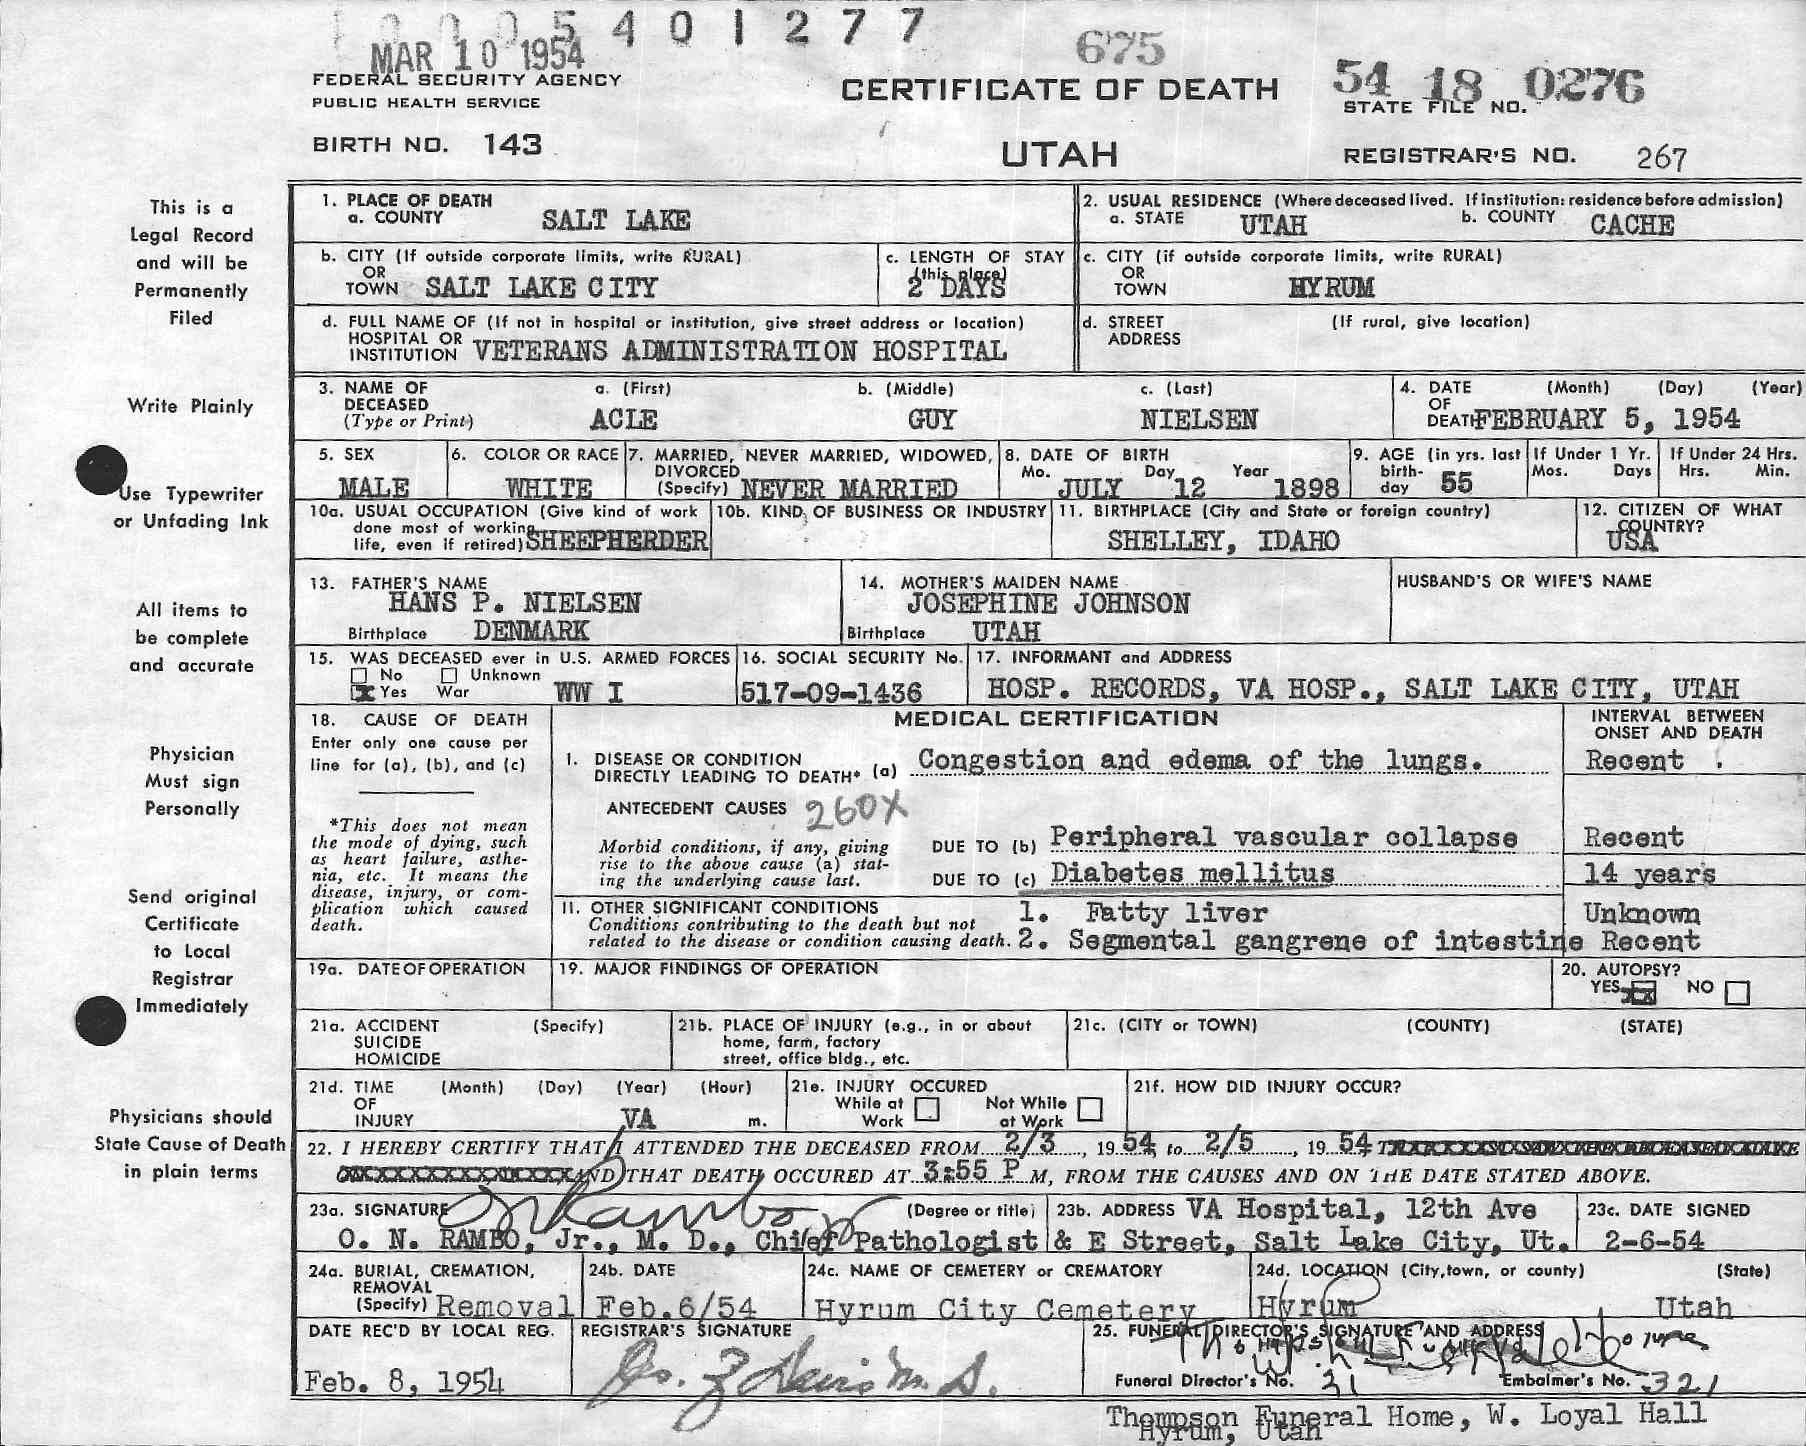 1 0 0 0 5 4 0 1 2 7 7
MAR 10 1954
675
FEDERAL SECURITY AGENCY
PUBLIC HEALTH SERVICE
CERTIFICATE OF DEATH
54 18 0276
STATE FILE NO.
BIRTH NO. 143
UTAH
REGISTRAR'S NO. 267
This is a
Legal Record
and will be
Permanently
Filed
Write Plainly
Use Typewriter
or Unfading Ink
All items to
be complete
and accurate
Physician
Must sign
Personally
Send original
Certificate
to Local
Registrar
Immediately
Physicians should
State Cause of Death
in plain terms
1. PLACE OF DEATH
a. COUNTY SALT LAKE
2. USUAL RESIDENCE (Where deceased lived. If institution: residence before admission)
a. STATE UTAH b. COUNTY CACHE
b. CITY (If outside corporate limits, write RURAL)
OR
TOWN SALT LAKE CITY
c. LENGTH OF STAY
(this place)
2 DAYS
c. CITY (if outside corporate limits, write RURAL)
OR
TOWN HYRUM
d. FULL NAME OF (If not in hospital or institution, give street address or location)
HOSPITAL OR
INSTITUTION VETERANS ADMINISTRATION HOSPITAL
d. STREET (If rural, give location)
ADDRESS
3. NAME OF a. (First) b. (Middle) c. (Last)
DECEASED
(Type or Print) ACLE GUY NIELSEN
4. DATE (Month) (Day) (Year)
OF
DEATH FEBRUARY 5, 1954
5. SEX
MALE
6. COLOR OR RACE
WHITE
7. MARRIED, NEVER MARRIED, WIDOWED,
DIVORCED
(Specify) NEVER MARRIED
8. DATE OF BIRTH
Mo. Day Year
JULY 12 1898
9. AGE (in yrs. last
birth-
day 55
If Under 1 Yr.
Mos. Days
If Under 24 Hrs.
Hrs. Min.
10a. USUAL OCCUPATION (Give kind of work
done most of working
life, even if retired) SHEEPHERDER
10b. KIND OF BUSINESS OR INDUSTRY
11. BIRTHPLACE (City and State or foreign country)
SHELLEY, IDAHO
12. CITIZEN OF WHAT
COUNTRY?
USA
13. FATHER'S NAME
HANS P. NIELSEN
Birthplace DENMARK
14. MOTHER'S MAIDEN NAME
JOSEPHINE JOHNSON
Birthplace UTAH
HUSBAND'S OR WIFE'S NAME
15. WAS DECEASED ever in U.S. ARMED FORCES
No Unknown
X Yes War WW I
16. SOCIAL SECURITY No.
517-09-1436
17. INFORMANT and ADDRESS
HOSP. RECORDS, VA HOSP., SALT LAKE CITY, UTAH
18. CAUSE OF DEATH
Enter only one cause per
line for (a), (b), and (c)
*This does not mean
the mode of dying, such
as heart failure, asthe-
nia, etc. It means the
disease, injury, or com-
plication which caused
death.
MEDICAL CERTIFICATION
INTERVAL BETWEEN
ONSET AND DEATH
I. DISEASE OR CONDITION
DIRECTLY LEADING TO DEATH* (a) Congestion and edema of the lungs. Recent .
ANTECEDENT CAUSES 260X
Morbid conditions, if any, giving
rise to the above cause (a) stat-
ing the underlying cause last.
DUE TO (b) Peripheral vascular collapse Recent
DUE TO (c) Diabetes mellitus 14 years
II. OTHER SIGNIFICANT CONDITIONS
Conditions contributing to the death but not
related to the disease or condition causing death.
1. Fatty liver Unknown
2. Segmental gangrene of intestine Recent
19a. DATE OF OPERATION
19. MAJOR FINDINGS OF OPERATION
20. AUTOPSY?
YES XX NO
21a. ACCIDENT (Specify)
SUICIDE
HOMICIDE
21b. PLACE OF INJURY (e.g., in or about
home, farm, factory
street, office bldg., etc.
21c. (CITY or TOWN) (COUNTY) (STATE)
21d. TIME (Month) (Day) (Year) (Hour)
OF
INJURY VA m.
21e. INJURY OCCURED
While at Work Not While at Work
21f. HOW DID INJURY OCCUR?
22. I HEREBY CERTIFY THAT I ATTENDED THE DECEASED FROM 2/3, 1954 to 2/5, 1954
AND THAT DEATH OCCURED AT 3:55 P M, FROM THE CAUSES AND ON THE DATE STATED ABOVE.
23a. SIGNATURE ON Rambo Jr (Degree or title)
O. N. RAMBO, Jr., M. D., Chief Pathologist
23b. ADDRESS VA Hospital, 12th Ave
& E Street, Salt Lake City, Ut.
23c. DATE SIGNED
2-6-54
24a. BURIAL, CREMATION,
REMOVAL
(Specify) Removal
24b. DATE
Feb.6/54
24c. NAME OF CEMETERY or CREMATORY
Hyrum City Cemetery
24d. LOCATION (City, town, or county) (State)
Hyrum Utah
DATE REC'D BY LOCAL REG.
Feb. 8, 1954
REGISTRAR'S SIGNATURE
25. FUNERAL DIRECTOR'S SIGNATURE AND ADDRESS
Funeral Director's No. 31 Embalmer's No. 321
Thompson Funeral Home, W. Loyal Hall
Hyrum, Utah